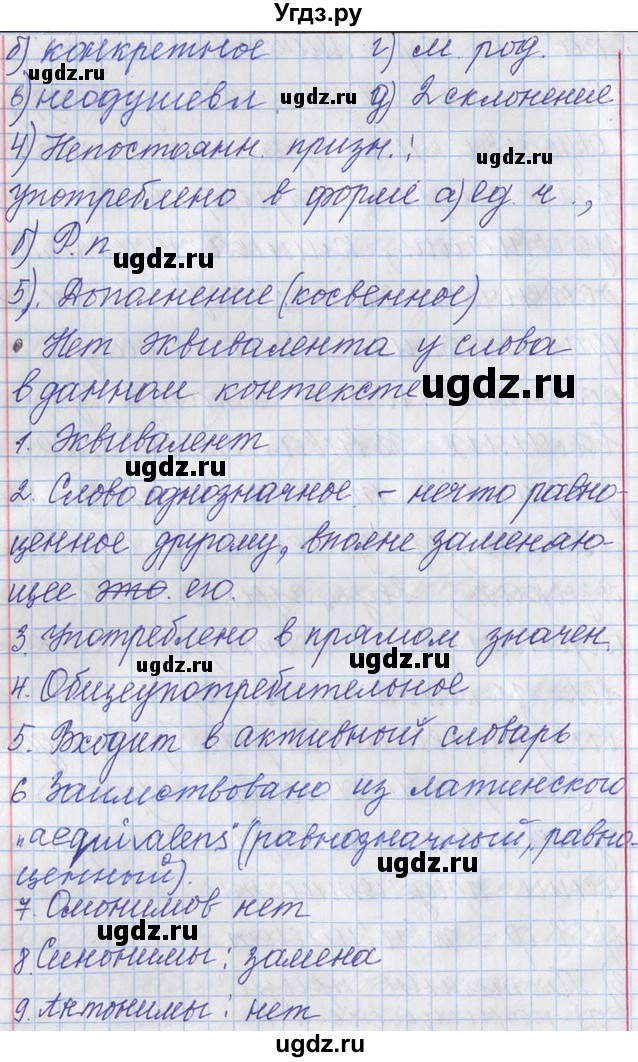 Угдз.ру
б) конкретное г) м. род.
ugdz.ru ugdz.ru
в) неодушевл. д) 2 склонение
ugdz.ru ugdz.ru
4) Непостоянн. призн.:
ugdz.ru
употреблено в форме а) ед. ч.,
б) Р.п
ugdz.ru
5). Дополнение (косвенное)
• Нет эквивалента у слова
в данном контексте
ugdz.ru
1. Эквивалент
ugdz.ru
2. Слово однозначное. - нечто равно-
ценное другому, вполне заменяю-
ugdz.ru
щее это. его.
3. Употреблено в прямом значен.
ugdz.ru ugdz.ru
4. Общеупотребительное
5. Входит в активный словарь
6 Заимствовано из латинского
ugdz.ru
„aequivalens" (равнозначный, равно-
ugdz.ru
ценный).
7. Омонимов нет
ugdz.ru
8 Синонимы: замена
9. Антонимы: нет
ugdz.ru ugdz.ru